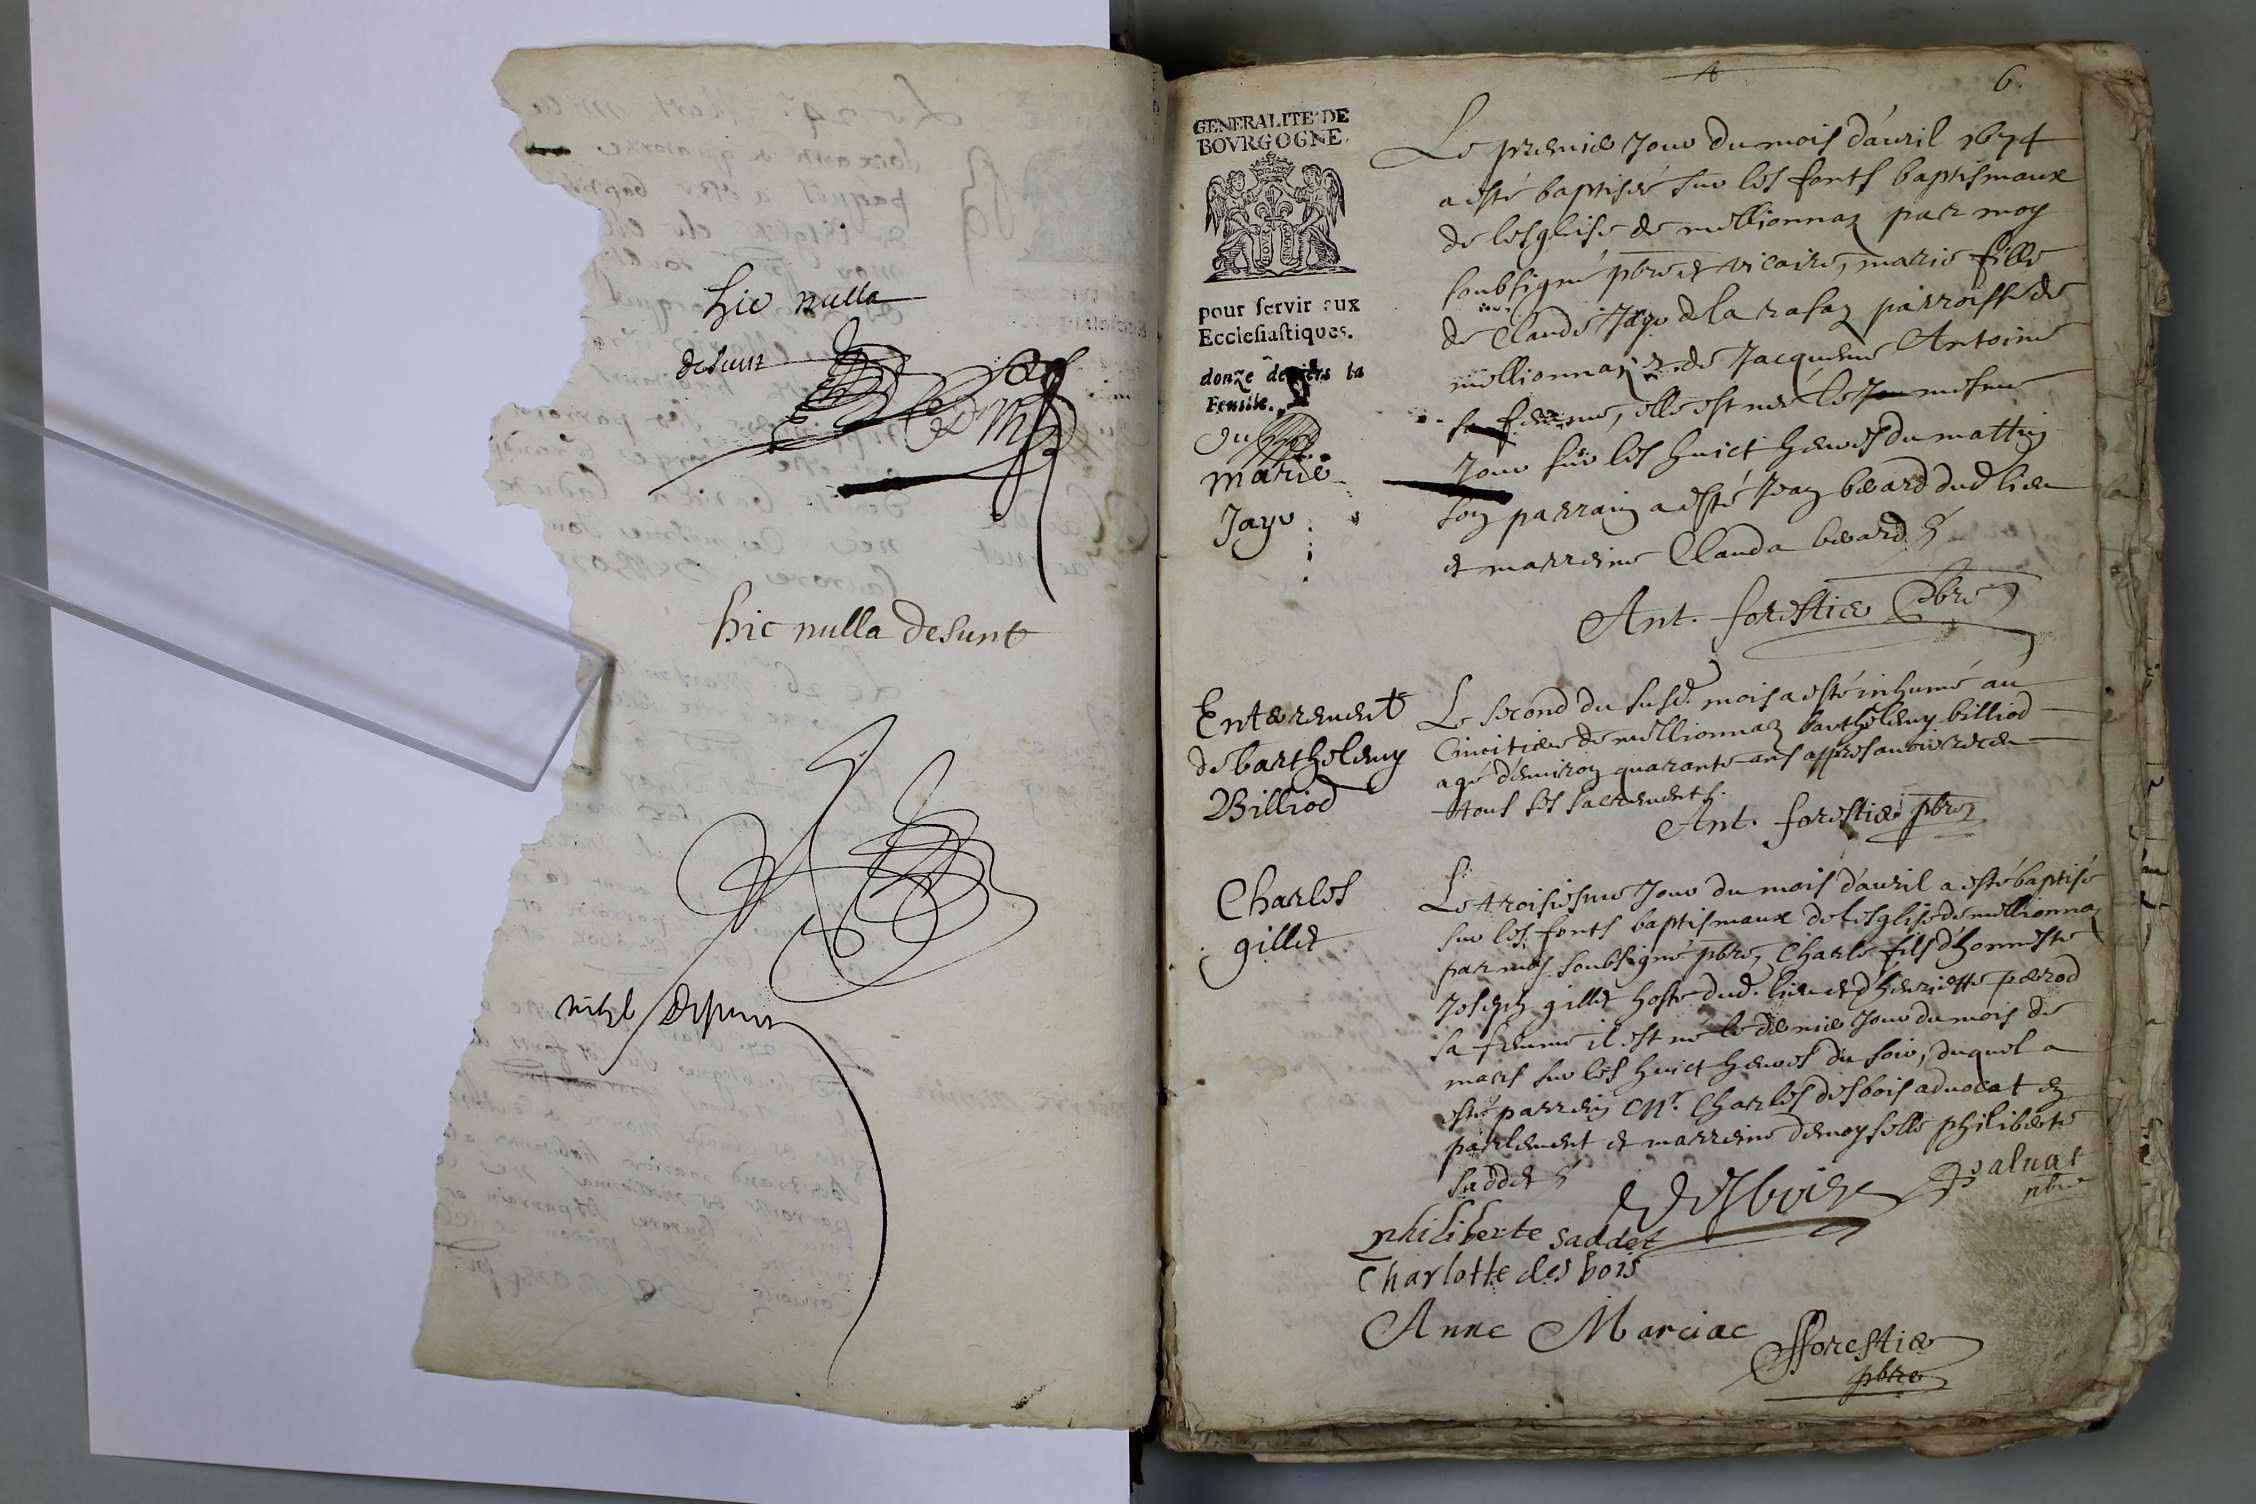 hic nulla
desunt
hic nulla desunt
nihil desunt
6.
GENERALITE' DE
BOVRGOGNE.
pour servir aux
Ecclesiastiques.
donze deniers la
Feuille.
Marie
Jayr
Le premier Jour du mois d'auril 1674
a esté baptiseé sur les fonts baptismaux
de lesglise de mellionnaz par moy
soubsigné pbre et vicaire, marie fille
de Claude Jayr de la rasaz parroisse de
mellionnaz et de Jacqueme Antoine
sa femme, elle est neé le mesme
Jour sur les huict heures du mattin
son parrain a esté Jean berard dud lieu
et marreine Clauda berard
Ant. forestier pbre
Enterrement
de barthelemy
Billiod
Le second du susd. mois a esté inhumé au
Cimitiere de mellionnaz barthelemy billiod
agé d'enuiron quarante ans appres auoir receu
tous ses sacrements.
Ant. forestier pbre
Charles
gillet
Le troisiesme Jour du mois d'auril a esté baptisé
sur les fonts baptismaux de lesglise de mellionnaz
par moy soubsigné pbre, Charle fils d'honneste
Joseph gillet hoste dud. lieu et d'henriette perrod
sa femme il est né le dernier Jour du mois de
mars sur les huict heures du soir, duquel a
esté parrein Mr. Charles desbois aduocat en
parlement et marreine demoyselle philiberte
saddet
C Desbois
paluat
pbre
philiberte saddet
Charlotte des bois
Anne Marciac
fforestier
pbre